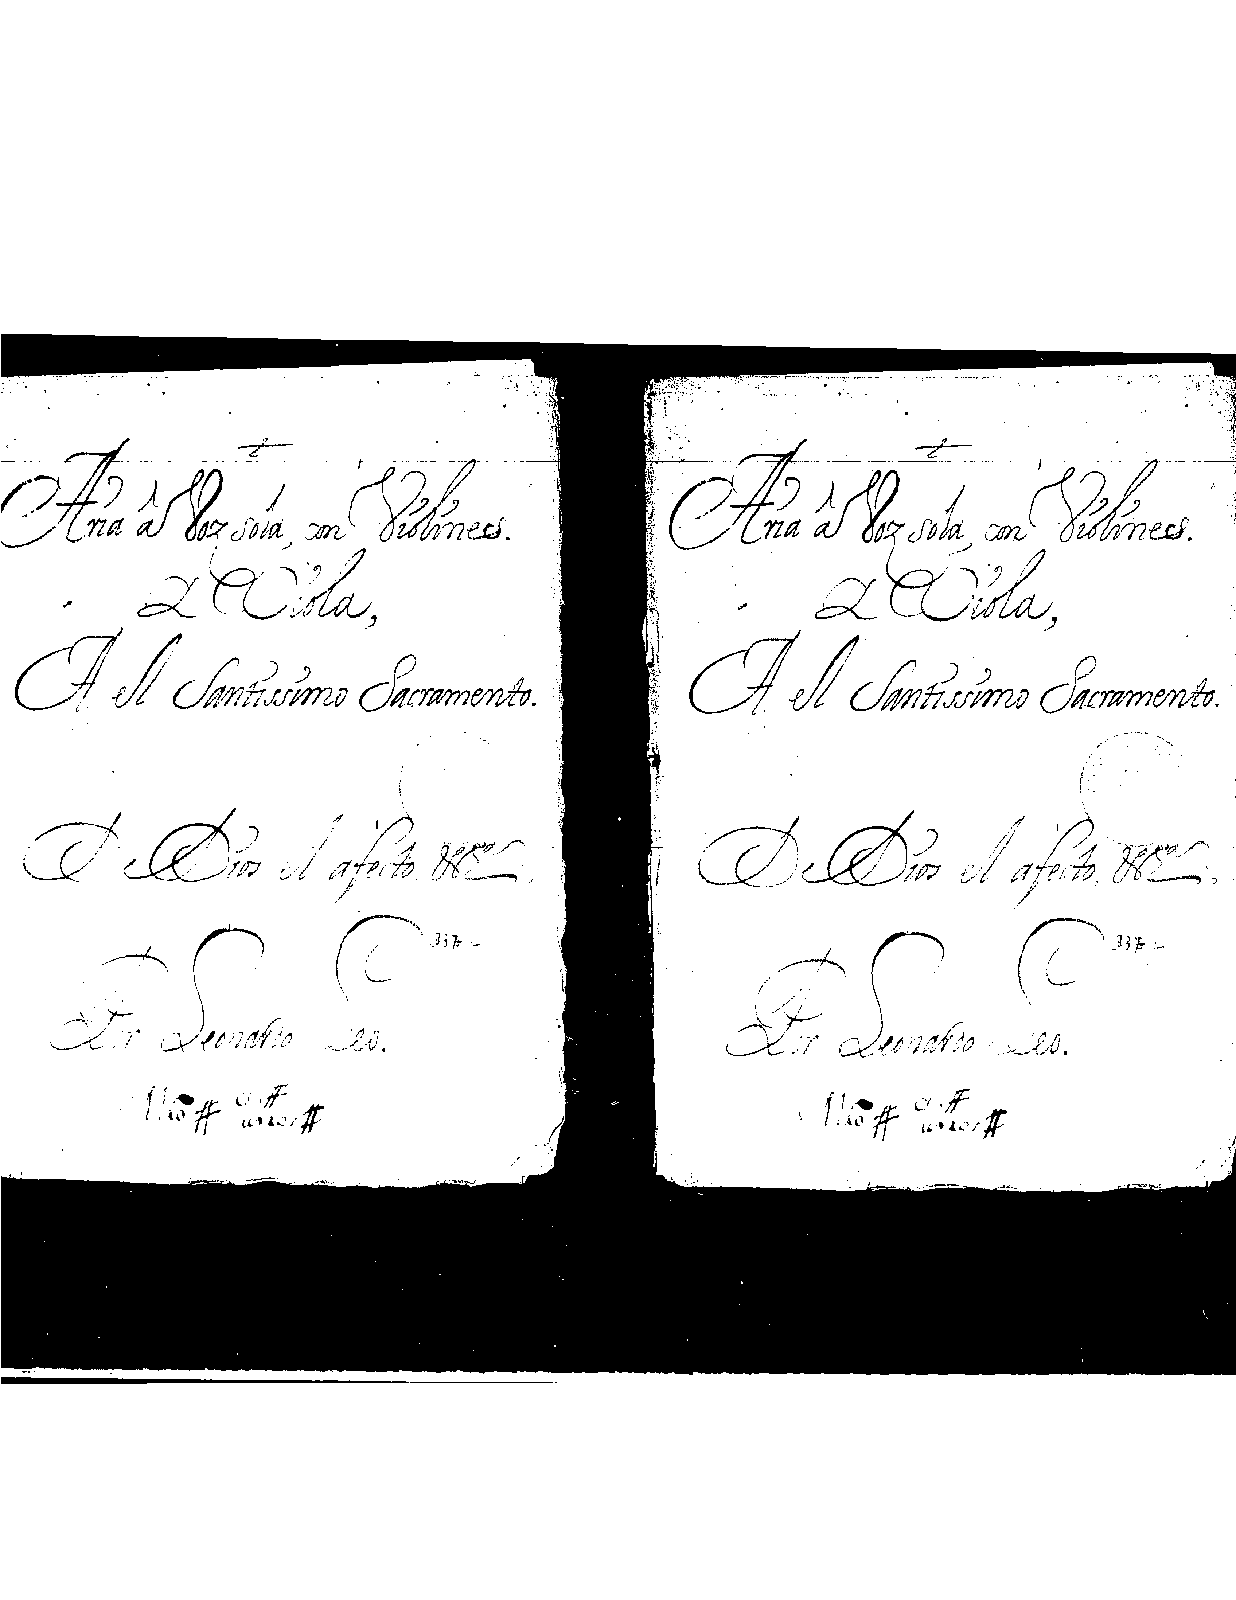 Aria â Voz sola, con Violines.
Y Viola,
A el Santissimo Sacramento.
De Dios el afecto. &c.
Por Leonardo Leo.
Aria â Voz sola, con Violines.
Y Viola,
A el Santissimo Sacramento.
De Dios el afecto. &c.
Por Leonardo Leo.